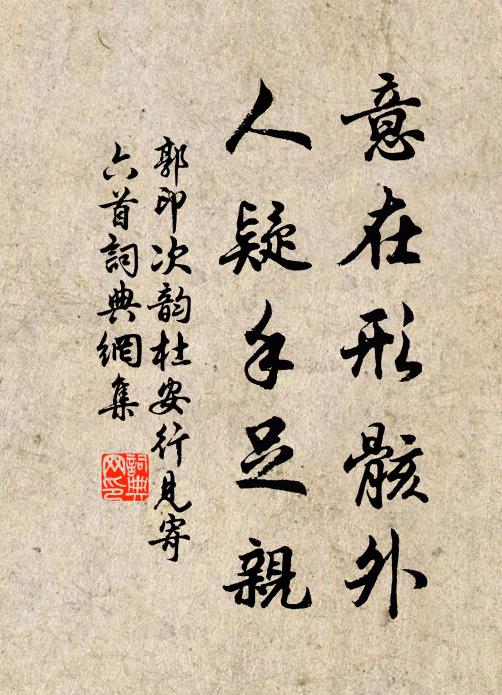 意在形骸外
人疑手足親
郭印次韵杜安行見寄
六首詞典網集
詞典
网印